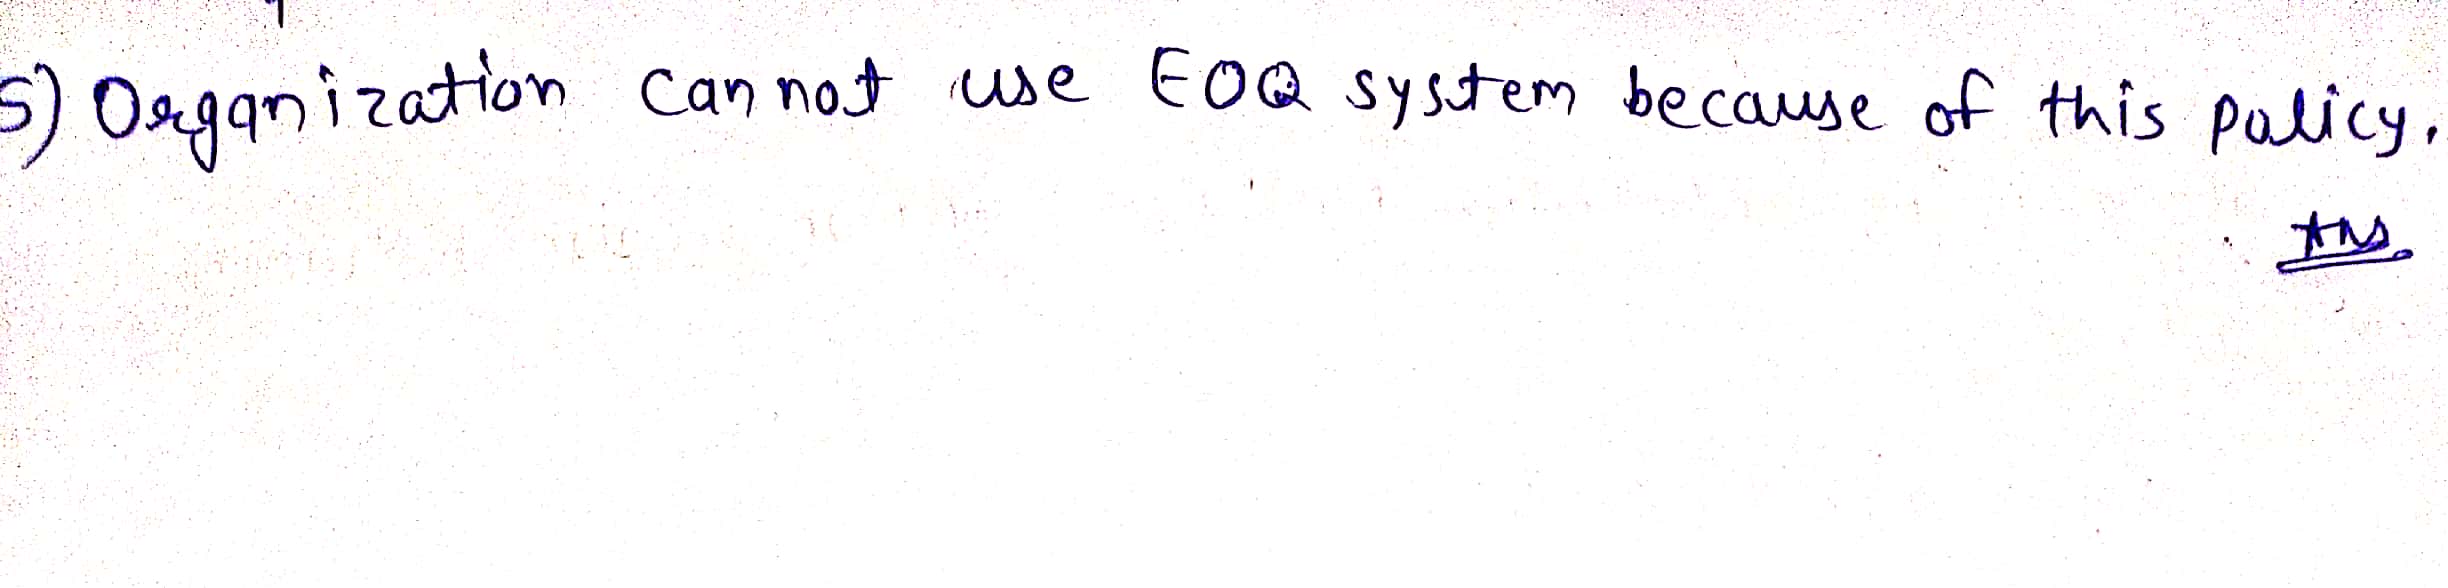 5) Organization cannot use EOQ system because of this policy.
Ans.